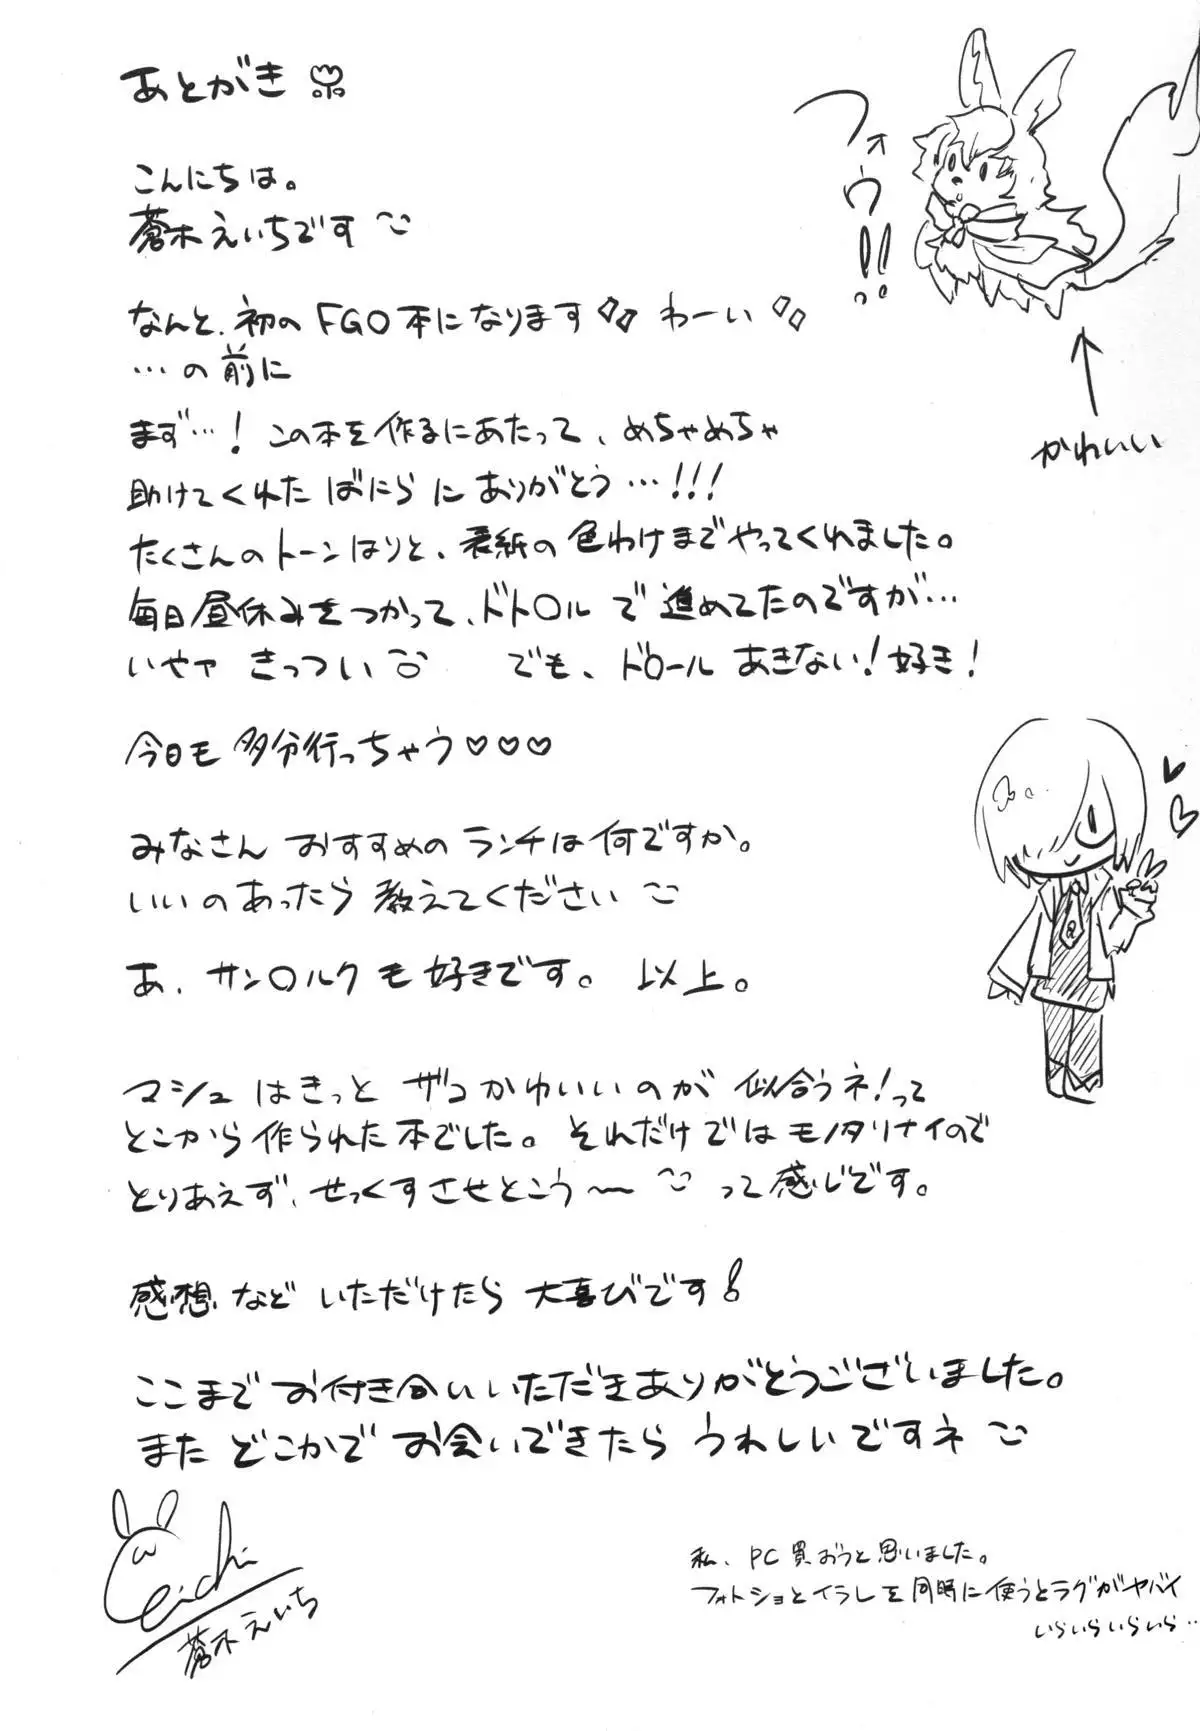 あとがき
こんにちは。
蒼木えいちです
なんと、初のFGO本になります わーい
…の前に
まず…！この本を作るにあたって、めちゃめちゃ
助けてくれた ばにら に ありがとう…!!!
たくさんのトーンはりと、表紙の色わけまでやってくれました。
毎日昼休みをつかって、ドト〇ルで進めてたのですが…
いやァ きっつい でも、ド〇ール あきない！好き！
今日も多分行っちゃう♡♡♡
みなさん おすすめのランチは何ですか。
いいのあったら 教えてください
あ、サン〇ルクも好きです。以上。
マシュはきっと ザコかわいいのが 似合うネ！って
とこから作られた本でした。それだけではモノタリナイので
とりあえず、せっくすさせとこう〜 って感じです。
感想などいただけたら大喜びです！
ここまでお付き合いいただきありがとうございました。
またどこかでお会いできたらうれしいですネ
eichi
蒼木えいち
フォウ!!
かわいい
私、PC買おうと思いました。
フォトショとイラレを同時に使うとラグがヤバイ
いらいらいらいら‥